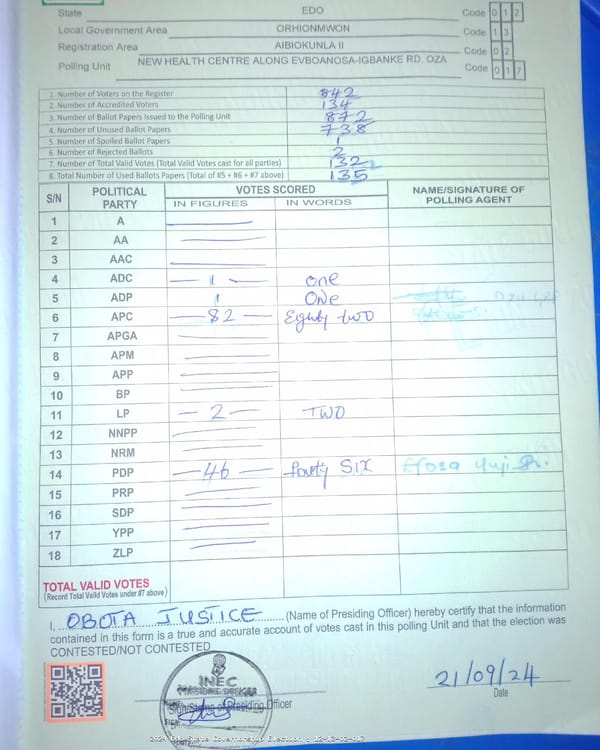 State EDO Code 0 1 2
Local Government Area ORHIONMWON Code 1 3
Registration Area AIBIOKUNLA II Code 0 2
Polling Unit NEW HEALTH CENTRE ALONG EVBOANOSA-IGBANKE RD, OZA Code 0 1 7
1. Number of Voters on the Register 842
2. Number of Accredited Voters 134
3. Number of Ballot Papers Issued to the Polling Unit 872
4. Number of Unused Ballot Papers 738
5. Number of Spoiled Ballot Papers 1
6. Number of Rejected Ballots 2
7. Number of Total Valid Votes (Total Valid Votes cast for all parties) 132
8. Total Number of Used Ballots Papers (Total of #5 + #6 + #7 above) 135
S/N POLITICAL PARTY VOTES SCORED NAME/SIGNATURE OF POLLING AGENT
IN FIGURES IN WORDS
1 A
2 AA
3 AAC
4 ADC 1 one
5 ADP 1 ONE
6 APC 82 Eighty two
7 APGA
8 APM
9 APP
10 BP
11 LP 2 TWO
12 NNPP
13 NRM
14 PDP 46 forty SIX Efosa
15 PRP
16 SDP
17 YPP
18 ZLP
TOTAL VALID VOTES
(Record Total Valid Votes under #7 above)
I, OBOTA JUSTICE (Name of Presiding Officer) hereby certify that the information
contained in this form is a true and accurate account of votes cast in this polling Unit and that the election was
CONTESTED/NOT CONTESTED
INEC
PRESIDING OFFICER
Sign/Stamp of Presiding Officer
21/09/24
Date
2024 Edo State Governorship Election : 12-13-02-017